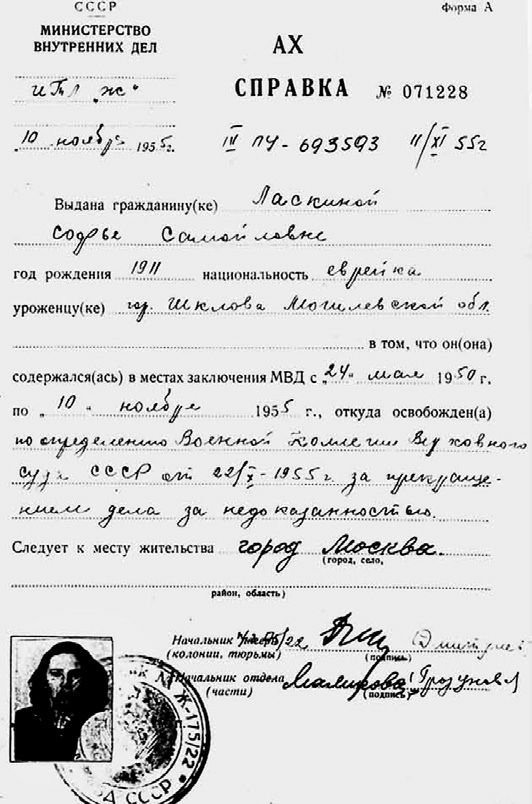 СССР
Форма А
МИНИСТЕРСТВО
ВНУТРЕННИХ ДЕЛ
АХ
ИТЛ „Ж“
СПРАВКА № 071228
10 ноября 1955г.
IV ПУ - 693593 11/XI 55г
Выдана гражданину(ке) Ласкиной
Софье Самойловне
год рождения 1911 национальность еврейка
уроженцу(ке) гор. Шклова Могилевской обл.
в том, что он(она)
содержался(ась) в местах заключения МВД с „24“ мая 1950 г.
по „10“ ноября 1955 г., откуда освобожден(а)
по определению Военной Коллегии Верховного
суда СССР от 22/X-1955 г. за прекраще-
нием дела за недоказанностью.
Следует к месту жительства город Москва.
(город, село,
район, область)
Начальник
(колонии, тюрьмы)
(подпись)
Начальник отдела
(части)
(подпись)
Ж-175/22
СССР